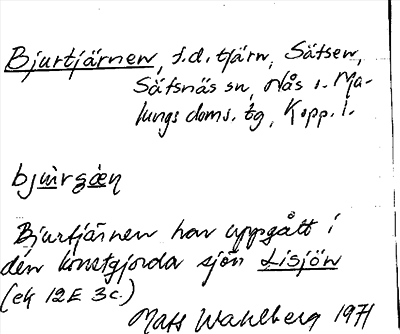 Bjurtjärnen, f.d. tjärn, Säfsen,
Säfsnäs sn, Nås o. Ma-
lungs doms. tg, Kopp. l.
Bjurtjärnen har uppgått i
den konstgjorda sjön Lisjön
(ek 12E 3c.)
Mats Wahlberg 1971